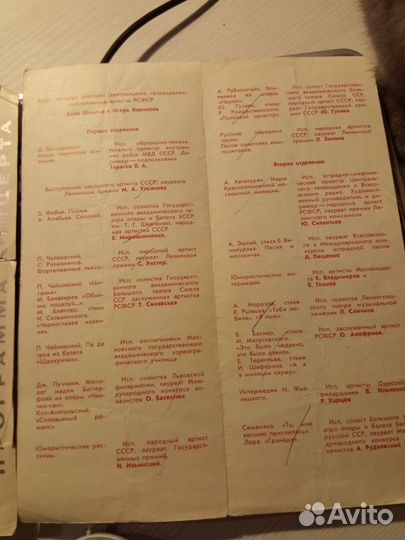 ПРОГРАММА КОНЦЕРТА
дикторы Центрального телевидения,
заслуженные артисты РСФСР
Анна Шилова и Игорь Кириллов
Первое отделение
Д. Шостакович.
Марш советской милиции.
Исп. образцово-показательный оркестр внутренних войск МВД СССР. Дирижер—подполковник
Тарасов В. А.
Выступление народного артиста СССР, лауреата
Ленинской премии М. А. Ульянова
З. Фибих. Поэма.
А. Алябьев. Соловей.
Исп. солистка Государственного академического театра оперы и балета УССР им. Т. Г. Шевченко, народная артистка СССР
Е. Мирошниченко.
П. Чайковский,
С. Рахманинов.
Фортепианные пьесы.
Исп. народный артист СССР, лауреат Ленинской премии С. Рихтер.
П. Чайковский. «Цыганка».
М. Балакирев. «Обойми, поцелуй...»
М. Блантер, стихи И. Сельвинского. «Черноглазая казачка».
Исп. солистка Государственного академического Большого театра Союза ССР, заслуженная артистка РСФСР Т. Синявская
П. Чайковский. Па де труа из балета «Щелкунчик».
Исп. воспитанники Московского государственного академического хореографического училища
Дж. Пуччини. Монолог мадам Баттерфляй из оперы «Чио-чио-сан».
Кос-Анатольский. «Соловьиный романс».
Исп. солистка Львовской филармонии, лауреат Международного конкурса вокалистов О. Басистюк
Юмористические рассказы.
Исп. народный артист СССР, лауреат Государственных премий,
И. Ильинский.
А. Рубинштейн. Эпиталама из оперы «Нерон».
Ю. Гуляев, стихи
«Полковой оркестр».
Исп. солист Государственного академического Большого театра Союза ССР, народный артист СССР, лауреат Государственной премии СССР Ю. Гуляев
Русские народные песни.
Песни советских композиторов.
Исп. народная артистка РСФСР, лауреат Ленинской премии
Л. Зыкина
Второе отделение
А. Хачатурян. Марш Краснознаменной московской милиции.
Исп. эстрадно-симфонический оркестр Центрального телевидения и Всесоюзного радио. Художественный руководитель и дирижер — народный артист РСФСР, лауреат премии Ленинского комсомола
Ю. Силантьев
А. Эшпай, стихи Е. Винокурова. «Москвичи».
Исп. лауреат Всесоюзного и Международного конкурсов эстрадной песни
Л. Лещенко
Юмористические интермедии.
Исп. артисты Москонцерта В. Владимиров и
В. Тонков
А. Морозов, стихи К. Рыжова. «Тебе любимая», «Я пою».
Исп. солистка Ленинградского театра музыкальной комедии Л. Сенчина
В. Баснер, стихи М. Матусовского. «Это было недавно, это было давно».
Б. Терентьев, стихи И. Шаферана. «А я в милиции служу».
Исп. заслуженный артист РСФСР О. Анофриев.
Интермедии М. Жванецкого.
Исп. артисты Одесской филармонии В. Ильченко,
Р. Карцев
Семеняка. «Ты мне весною приснилась».
Лара. «Гранада».
Исп. солист Большого театра оперы и балета Белорусской ССР, лауреат Международного конкурса вокалистов А. Рудковский
Avito